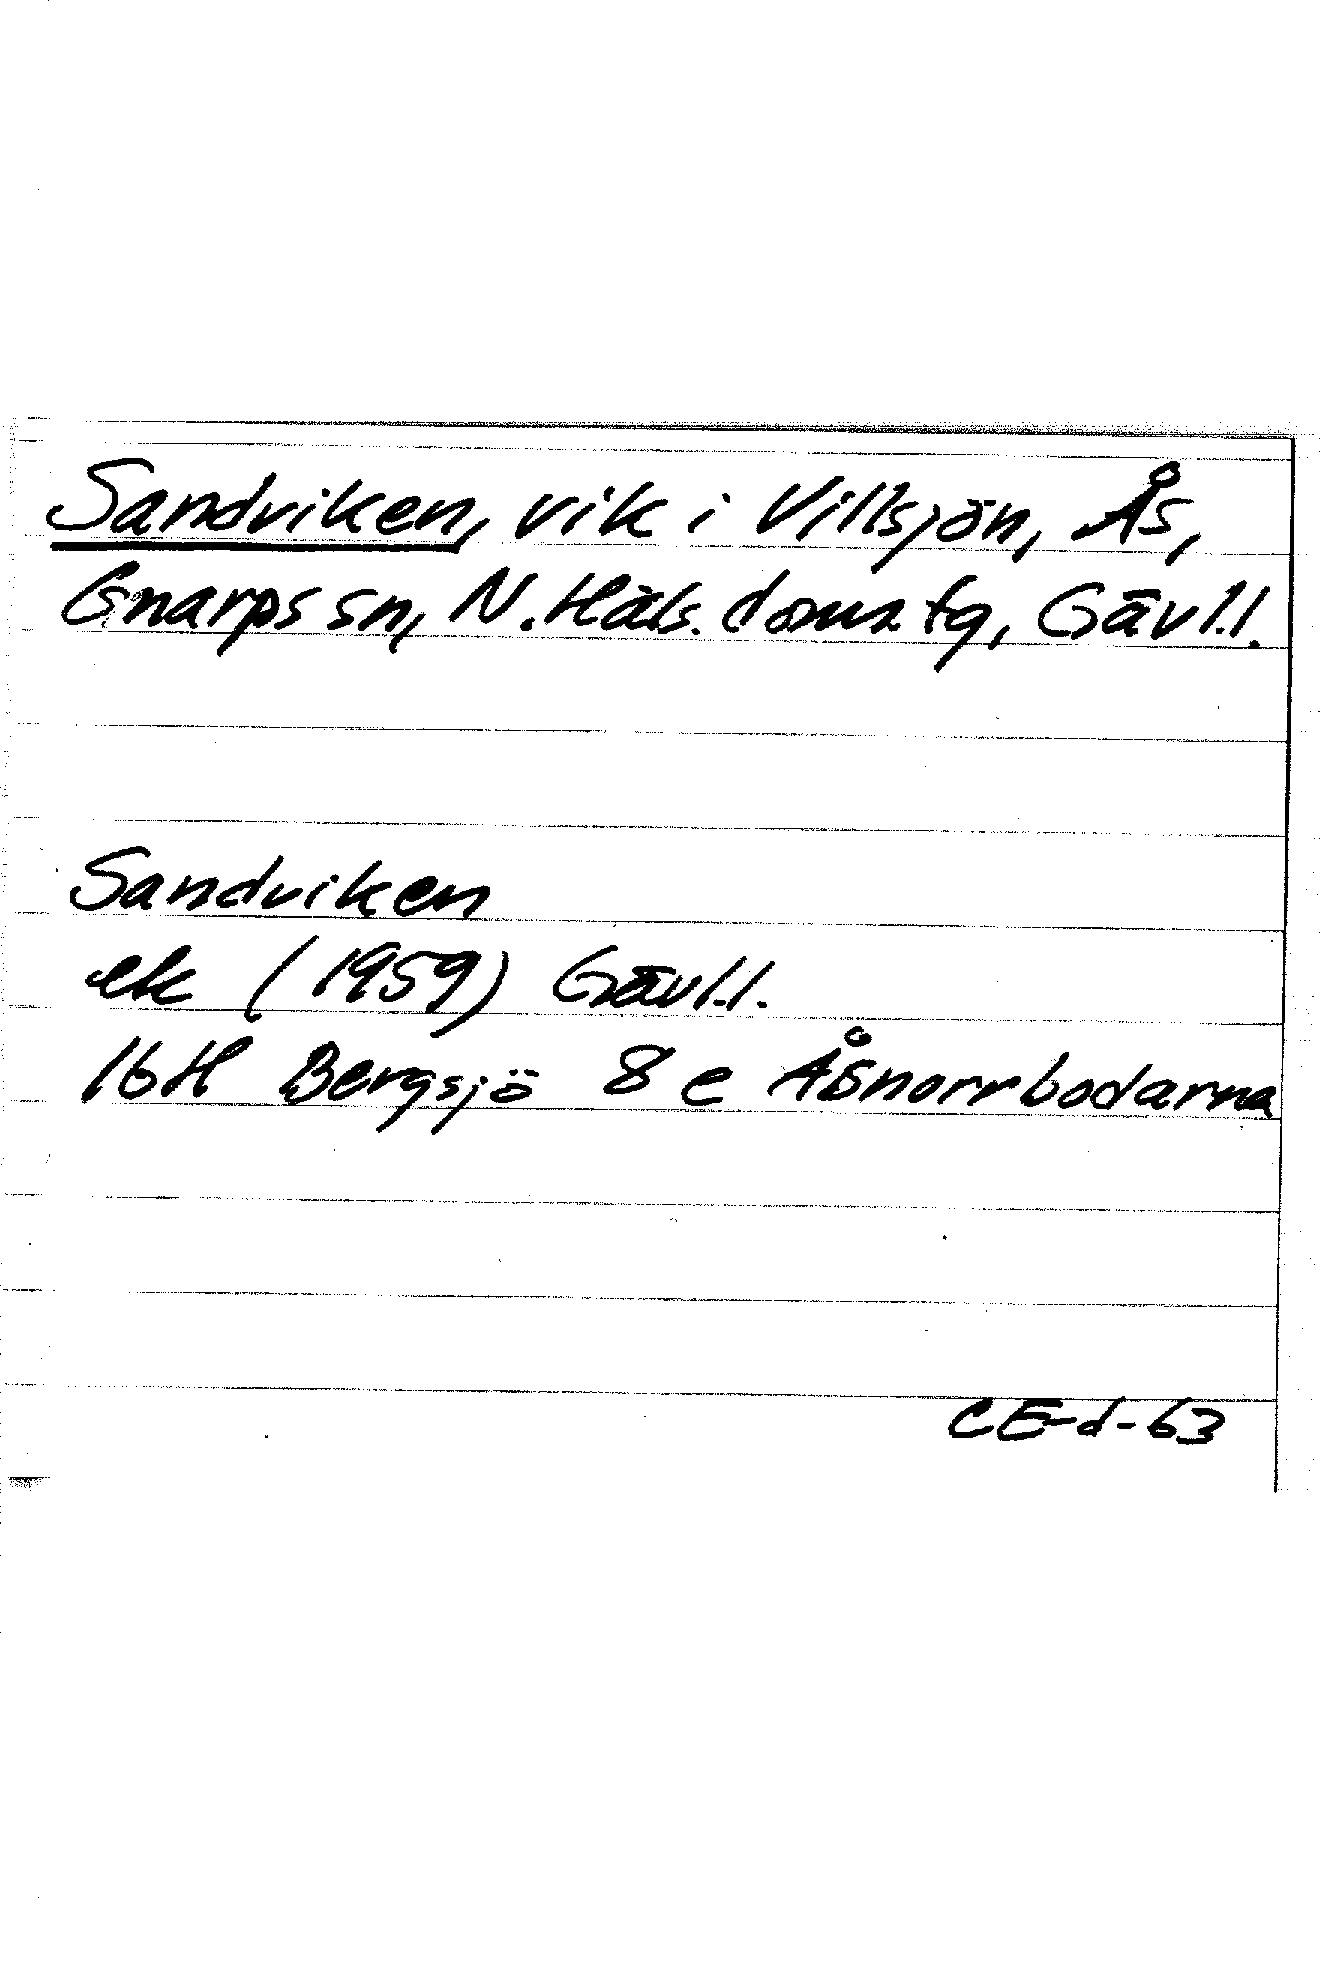 Sandviken, vik i Villsjön, Ås,
Gnarps sn, N. Häls. doms tg, Gävl.l.
Sandviken
ek (1959) Gävl.l.
16H Bergsjö 8 e Åsnorrbodarna
CE-d-63